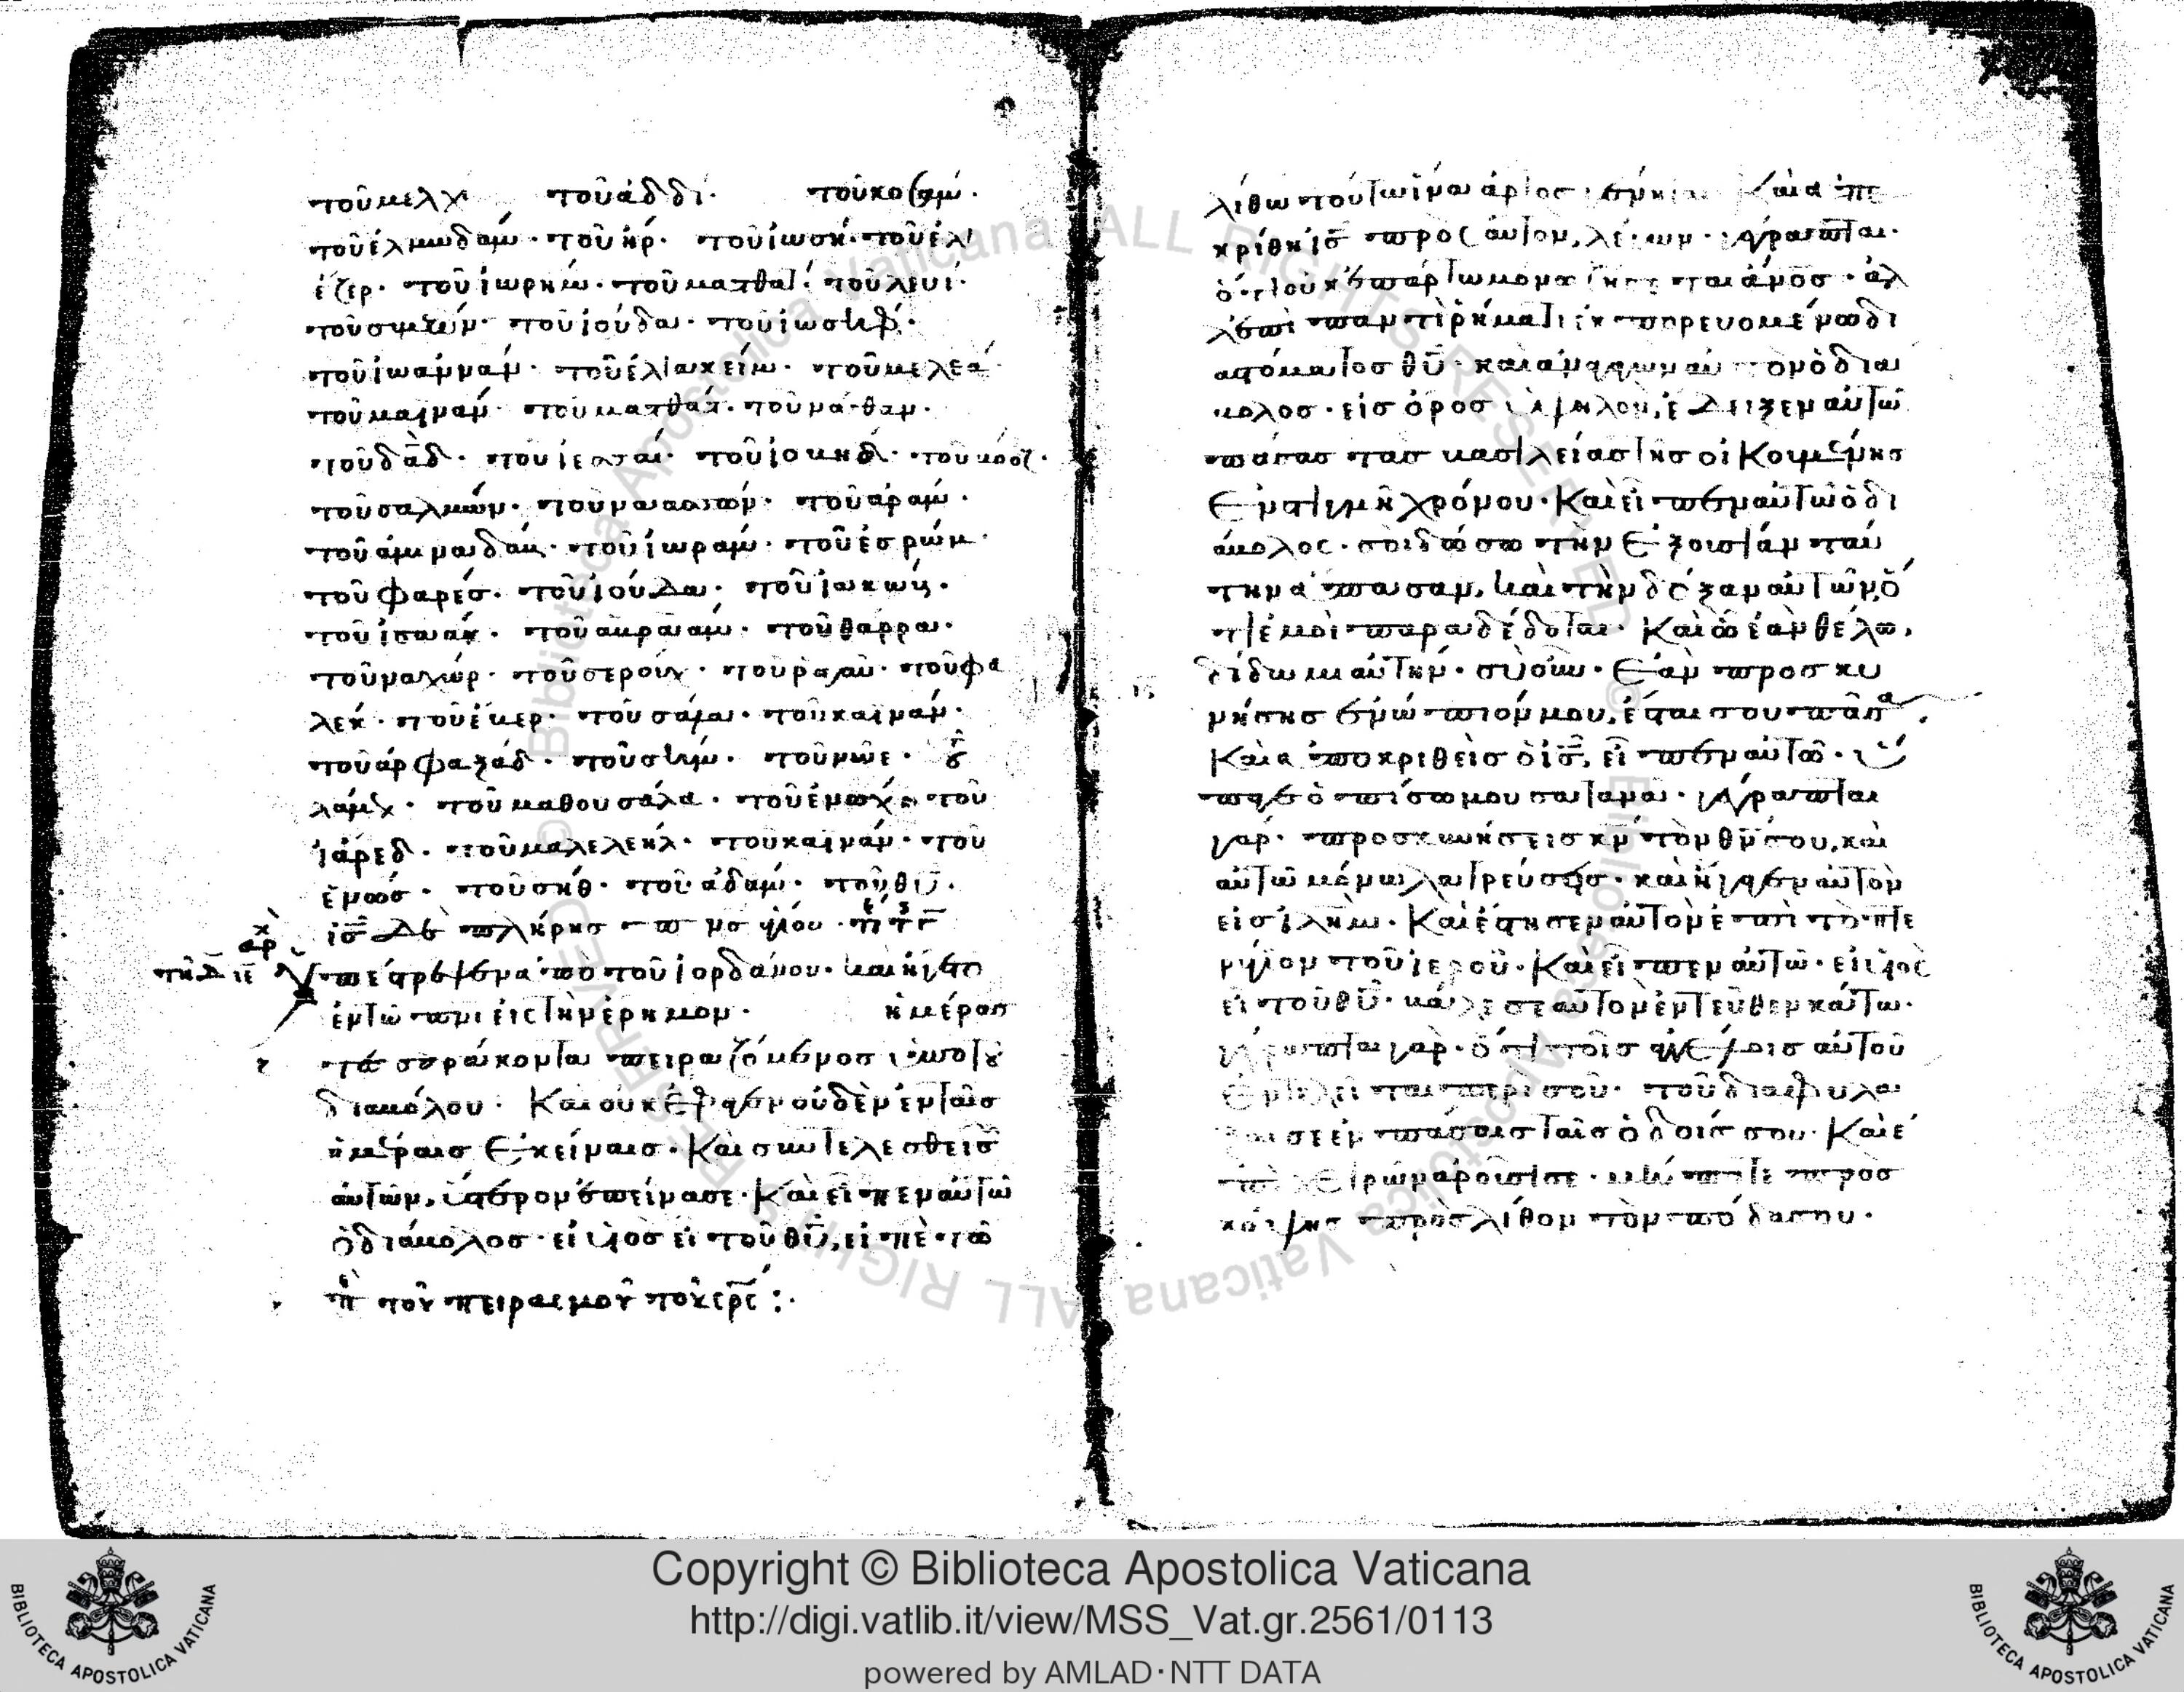 τοῦ μελχί τοῦ ἀδδί· τοῦ κοσάμ·
τοῦ ἐλμωδάμ· τοῦ ἤρ· τοῦ ἰωσή· τοῦ ἐλι
έζερ· τοῦ ἰωρήμ· τοῦ ματθάτ· τοῦ λευί·
τοῦ συμεών· τοῦ ἰούδα· τοῦ ἰωσήφ·
τοῦ ἰωάνναν· τοῦ ἐλιακείμ· τοῦ μελεᾶ·
τοῦ μαϊνάν· τοῦ ματθάτ· τοῦ νάθαν·
τοῦ δᾱδ· τοῦ ἰεσσαί· τοῦ ἰωβήδ· τοῦ βοόζ·
τοῦ σαλμών· τοῦ ναασσών· τοῦ ἀράμ·
τοῦ ἀμιναδάμ· τοῦ ἰωράμ· τοῦ ἐσρώμ·
τοῦ φαρές· τοῦ ἰούδα· τοῦ ἰακώβ·
τοῦ ἰσαάκ· τοῦ ἀβραάμ· τοῦ θάρρα·
τοῦ ναχώρ· τοῦ σερούχ· τοῦ ῥαγαῦ· τοῦ φα
λέκ· τοῦ ἔβερ· τοῦ σάλα· τοῦ καϊνάν·
τοῦ ἀρφαξάδ· τοῦ σήμ· τοῦ νῶε· τοῦ
λάμεχ· τοῦ μαθουσάλα· τοῦ ἐνώχ· τοῦ
ἰάρεδ· τοῦ μαλελεήλ· τοῦ καϊνάν· τοῦ
ἐνώς· τοῦ σήθ· τοῦ ἀδάμ· τοῦ θῡ·
ις̄ δὲ πλήρης
ἀρχ
ὑπέστρεψεν ἀπὸ τοῦ ἰορδάνου· καὶ ἤγετο
ἐν τῶ πνι εἰς τὴν ἔρημον· ἡμέρας
τεσσαράκοντα πειραζόμενος ὑπὸ τοῦ
διαβόλου· Καὶ οὐκ ἔφαγεν οὐδὲν ἐν ταῖς
ἡμέραις ἐκείναις· Καὶ συντελεσθεισῶν
αὐτῶν, ὕστερον ἐπείνασε· Καὶ εἶπεν αὐτῶ
ὁ διάβολος· εἰ υἱὸς εἶ τοῦ θῡ, εἰπὲ τῶ
τοῦ πειρασμοῦ
λίθω τούτω ἵνα γένηται ἄρτος· Καὶ ἀπε
κρίθη ις̄ πρὸς αὐτὸν, λέγων· γέγραπται·
ὅτι οὐκ ἐπ' ἄρτω μόνω ζήσεται ἄνος· ἀλ
λ' ἐπὶ παντὶ ῥήματι ἐκπορευομένω δι
α στόματος θῡ· καὶ ἀναγαγὼν αὐτὸν ὁ διά
βολος· εἰς ὄρος ὑψηλὸν, ἔδειξεν αὐτῶ
πάσας τὰς βασιλείας τῆς οἰκουμένης
ἐν στιγμῆ χρόνου· Καὶ εἶπεν αὐτῶ ὁ δι
άβολος· σοὶ δώσω τὴν ἐξουσίαν ταύ
την ἅπασαν, καὶ τὴν δόξαν αὐτῶν, ὅ
τι ἐμοὶ παραδέδοται· Καὶ ὧ ἐὰν θέλω,
δίδωμι αὐτήν· σὺ οὖν· ἐὰν προσκυ
νήσης ἐνώπιόν μου, ἔσται σου πᾶσα,
Καὶ ἀποκριθεὶς ὁ ις̄, εἶπεν αὐτῶ· ὕ
παγε ὀπίσω μου σατανᾶ· γέγραπται
γάρ· προσκυνήσεις κν̄ τὸν θν̄ σου, καὶ
αὐτῶ μόνω λατρεύσεις· καὶ ἤγαγεν αὐτὸν
εἰς ἱλημ· Καὶ ἔστησεν αὐτὸν ἐπὶ τὸ πτε
ρύγιον τοῦ ἱεροῦ· Καὶ εἶπεν αὐτῶ· εἰ υἱὸς
εἶ τοῦ θῡ· βάλε σεαυτὸν ἐντεῦθεν κάτω·
γέγραπται γάρ· ὅτι τοῖς ἀγγέλοις αὐτοῦ
ἐντελεῖται περὶ σοῦ· τοῦ διαφυλά
ξαι σε ἐν πάσαις ταῖς ὁδοῖς σου· Καὶ ἐ
πὶ χειρῶν ἀροῦσί σε· μήποτε προσ
κόψης πρὸς λίθον τὸν πόδα σου·
Copyright © Biblioteca Apostolica Vaticana
http://digi.vatlib.it/view/MSS_Vat.gr.2561/0113
powered by AMLAD·NTT DATA
BIBLIOTECA APOSTOLICA VATICANA
BIBLIOTECA APOSTOLICA VATICANA